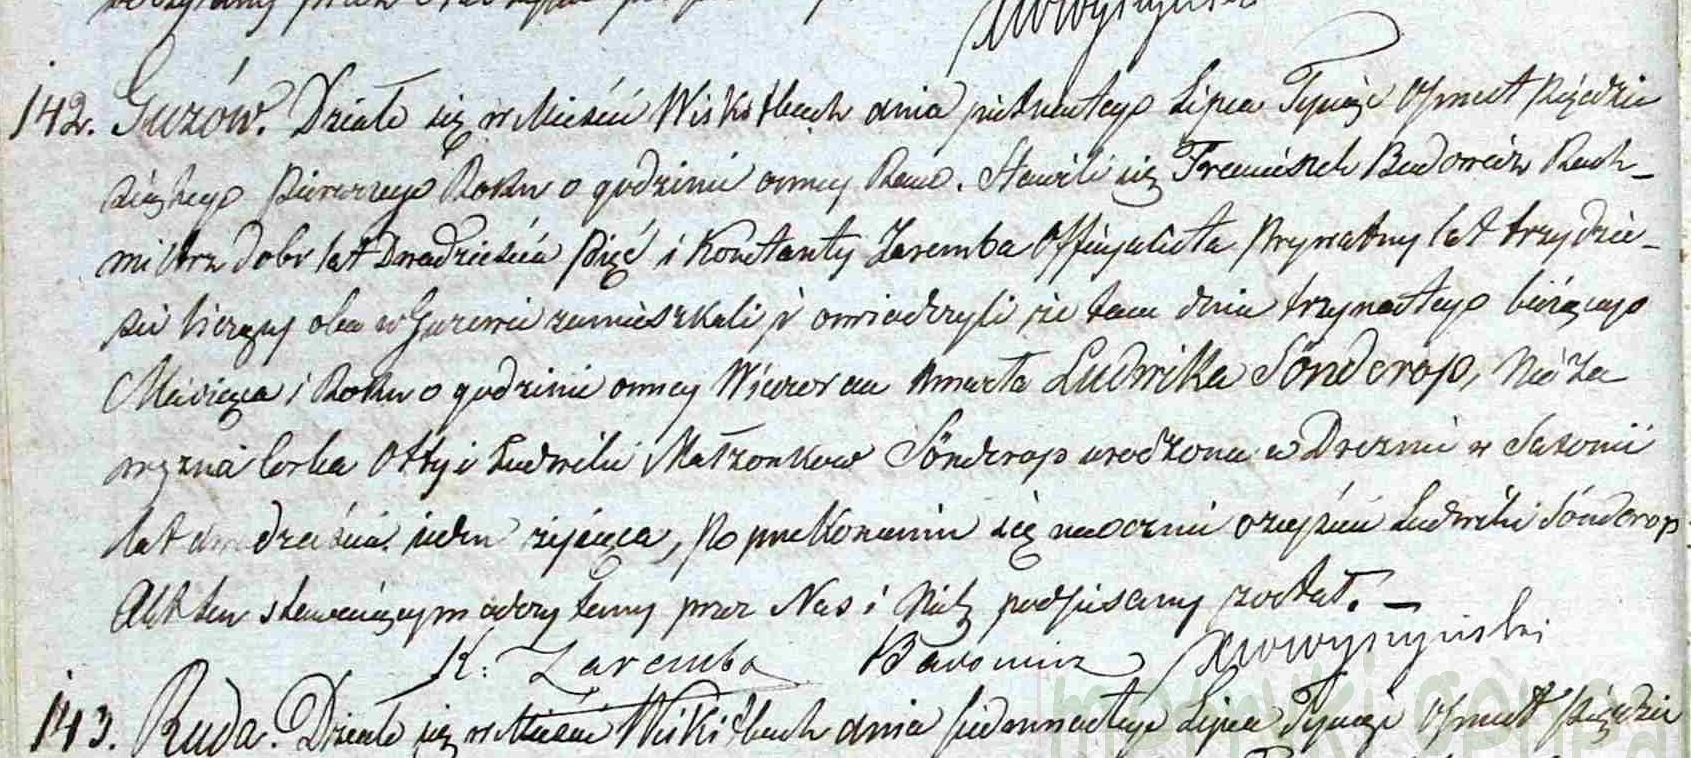 142. Guzów. Działo się w Mieście Wiskitkach dnia piętnastego Lipca Tysiąc Osmset Pięćdzie
siątego Pierwszego Roku o godzinie osmey Rano. Stawili się Franciszek Budowicz Rach_
mistrz dobr lat Dwadzieścia Pięć i Konstanty Zaremba Officyalista Prywatny lat trzydzie_
sci liczący oba w Guzowie zamieszkali i oswiadczyli że tam dnia trzynastego bieżącego
Miesiąca i Roku o godzinie osmey Wieczorem Umarła Ludwika Sönderop, Nieza
mężna Corka Otty i Ludwiki Małżonkow Sönderop urodzona w Dreznie w Saxonii
lat dwadzieścia jeden żyjąca, Po przekonaniu się naocznie o zejściu Ludwiki Sönderop
Akt ten stawaiącym odczytany przez Nas i Nich podpisany został. _
K: Zaremba
143. Ruda. Działo się w Mieście Wiskitkach dnia siedemnastego Lipca Tysiąc Osmset Pięćdzie